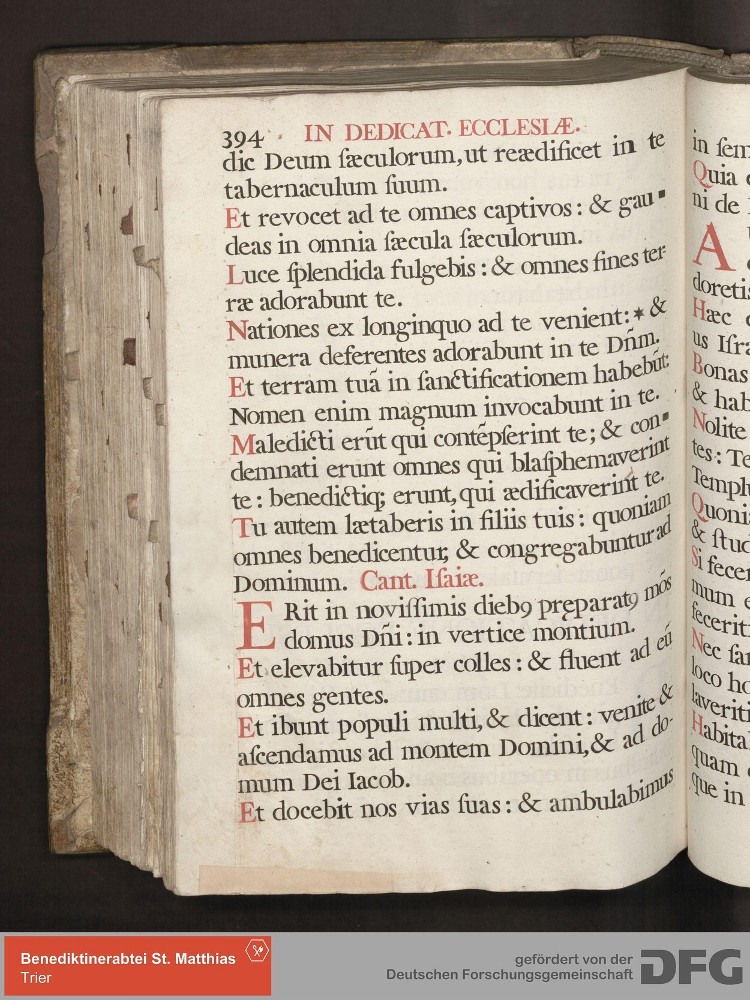 394 · IN DEDICAT. ECCLESIÆ.
dic Deum ſæculorum, ut reædificet in te
tabernaculum ſuum.
Et revocet ad te omnes captivos: & gau
deas in omnia ſæcula ſæculorum.
Luce ſplendida fulgebis: & omnes fines ter-
ræ adorabunt te.
Nationes ex longinquo ad te venient: * &
munera deferentes adorabunt in te Dn̄m.
Et terram tuā in ſanctificationem habebūt:
Nomen enim magnum invocabunt in te.
Maledicti erūt qui contēpſerint te; & con-
demnati erunt omnes qui blaſphemaverint
te: benedictiq; erunt, qui ædificaverint te.
Tu autem lætaberis in filiis tuis: quoniam
omnes benedicentur, & congregabuntur ad
Dominum. Cant. Iſaiæ.
ERit in noviſſimis diebꝰ præparatꝰ mōs
domus Dn̄i: in vertice montium.
Et elevabitur ſuper colles: & fluent ad eū
omnes gentes.
Et ibunt populi multi, & dicent: venite &
aſcendamus ad montem Domini, & ad do-
mum Dei Iacob.
Et docebit nos vias ſuas: & ambulabimus
in ſem
Quia
ni de
A
doretis
Hæc
us Iſra
Bonas
& hab
Nolite
tes: Te
Templ
Quoni
& ſtud
Si fecer
mum e
feceriti
Nec
loco ho
laveriti
Habita
quam
que in
Benediktinerabtei St. Matthias
Trier
gefördert von der
Deutschen Forschungsgemeinschaft
DFG